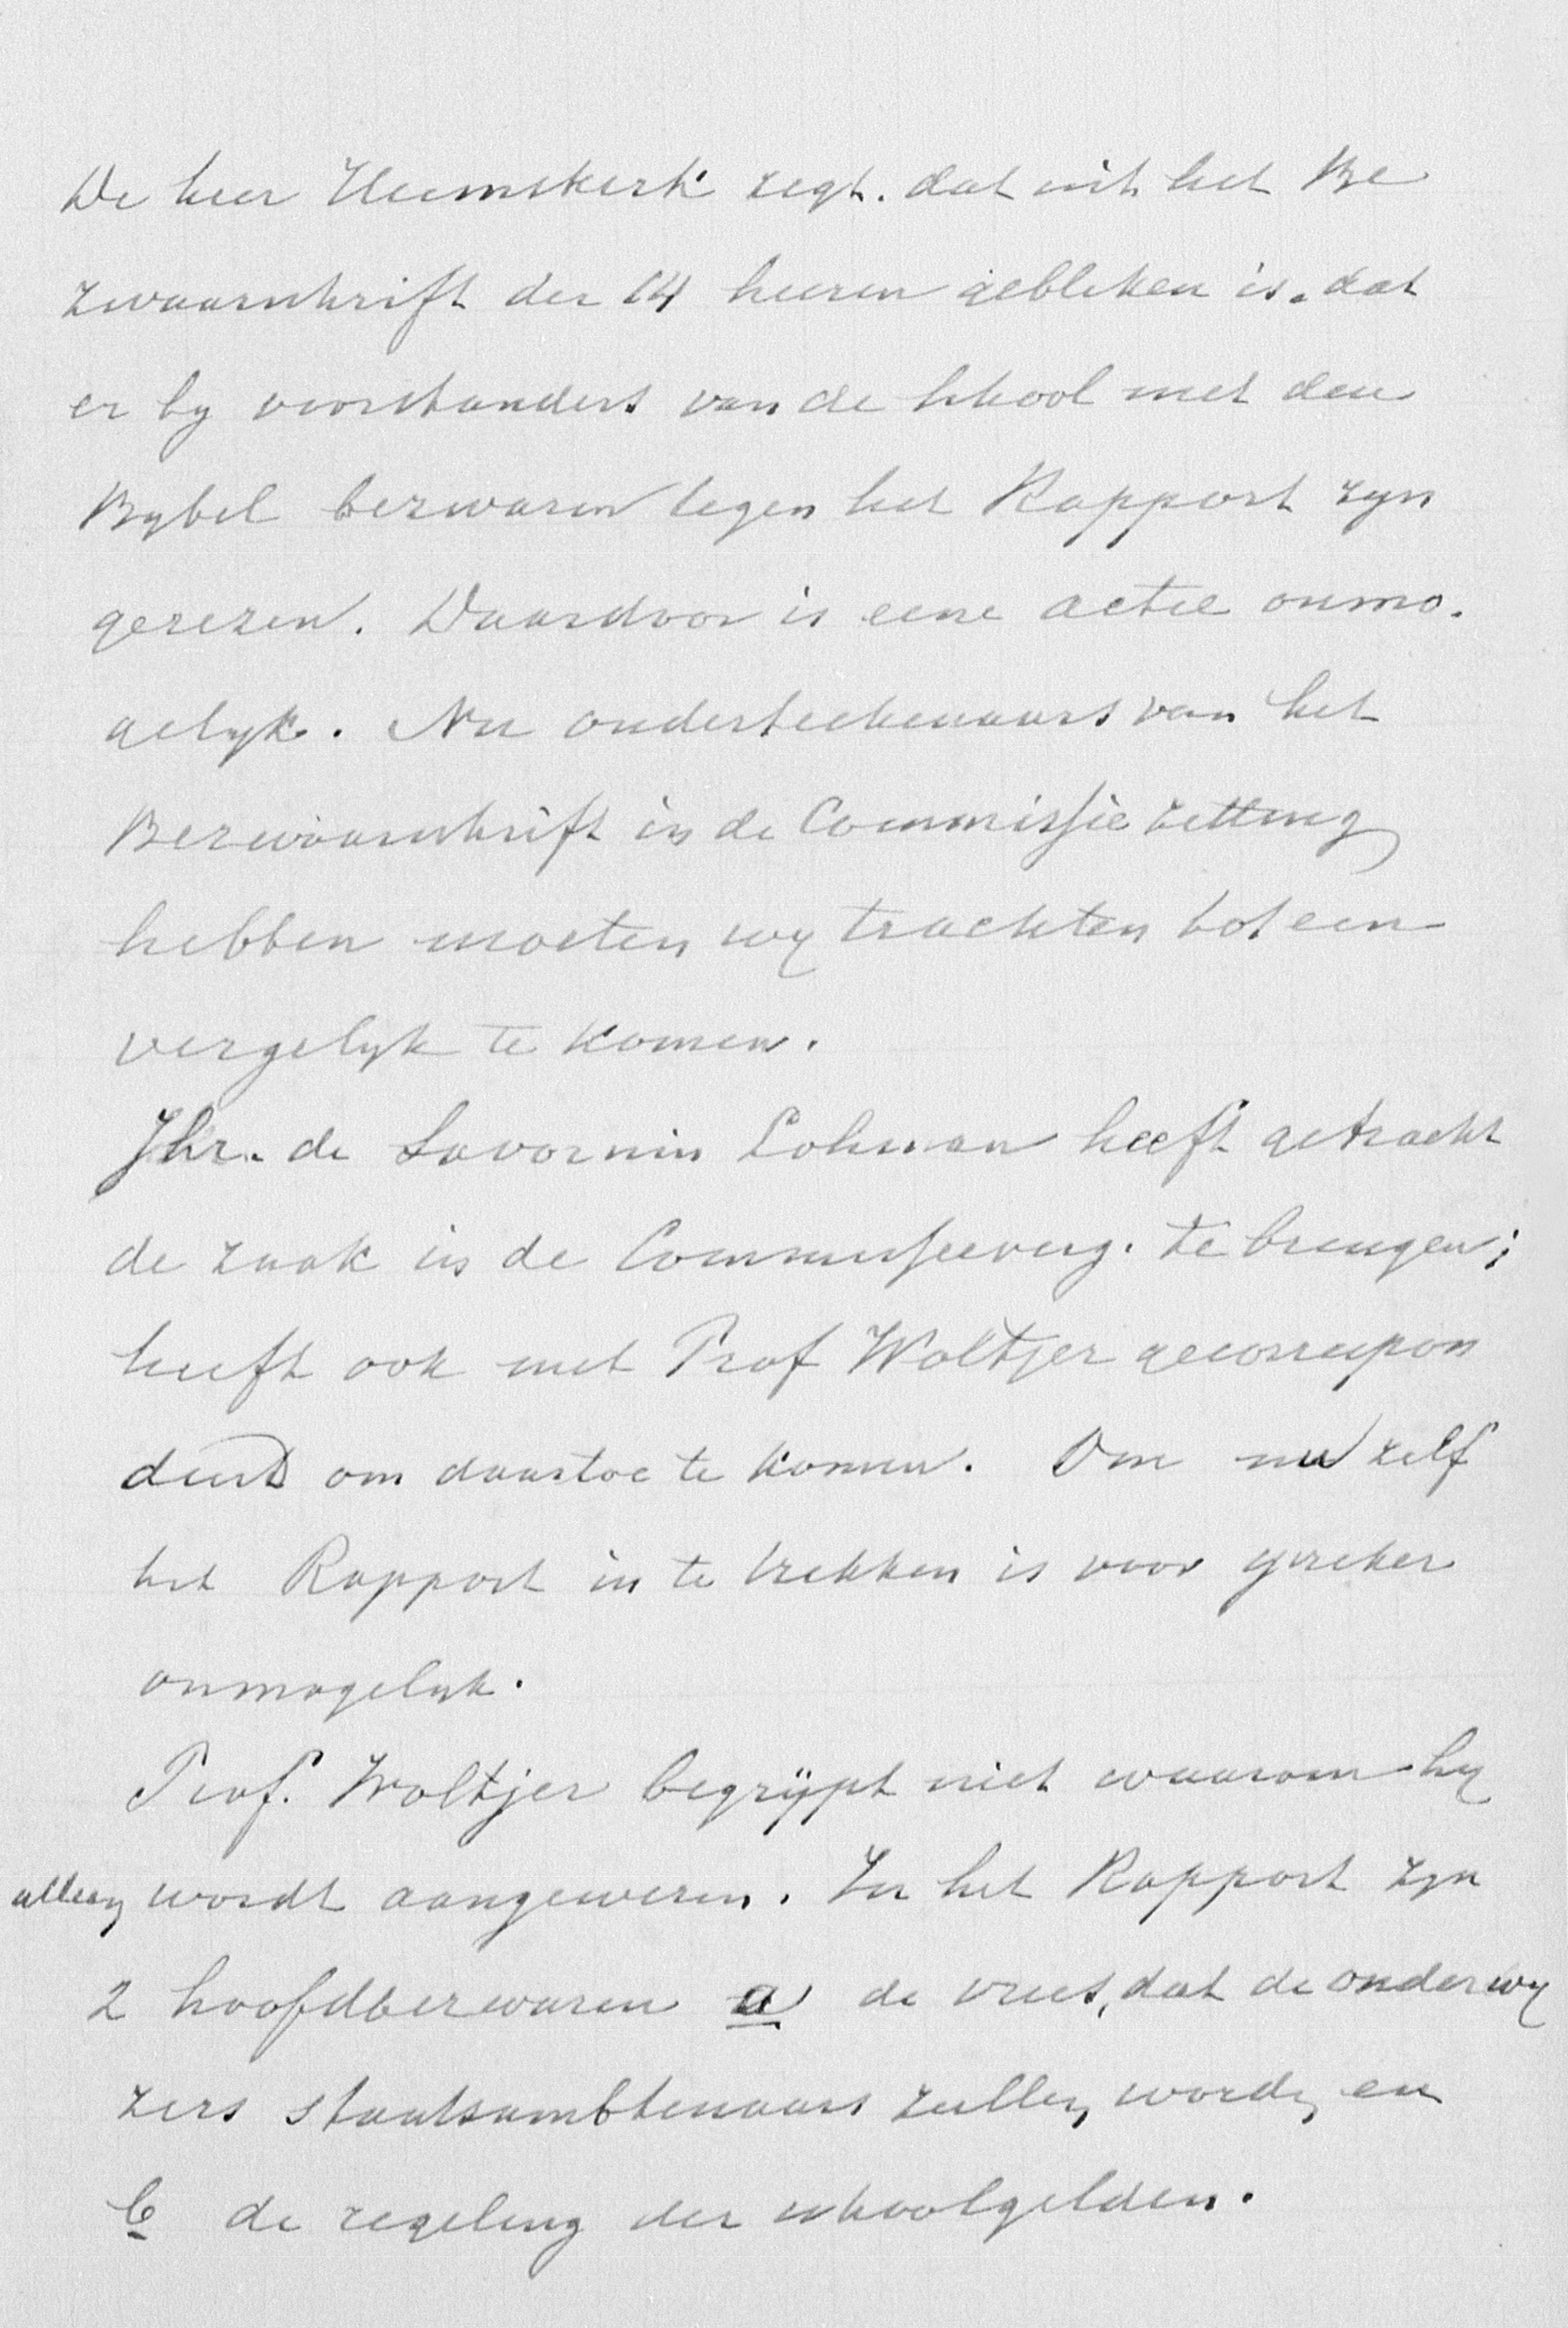 De heer Heemskerk zegt. dat uit het Be
zwaarschrift der 14 heeren gebleken is. dat
er by voorstanders van de school met den
Bybel bezwaren tegen het Rapport zyn
gerezen. Daardoor is eene actie onmo.
gelyk. Nu onderteekenaars van het
Bezwaarschrift in de Commissie zitting
hebben moeten wy trachten tot een
vergelyk te komen.
Jhr. de Savornin Lohman heeft getracht
de zaak in de Commissieverg. te brengen;
heeft ook met Prof Woltjer gecorrespon
deerd om daartoe te komen. Om nu zelf
het Rapport in te trekken is voor spreker
onmogelyk.
Prof. Woltjer begrijpt niet waarom hy
alleen wordt aangewezen. In het Rapport zyn
2 hoofdbezwaren a de vrees, dat de onderwy
zers staatsambtenaars zullen worden en
b de regeling der schoolgelden.